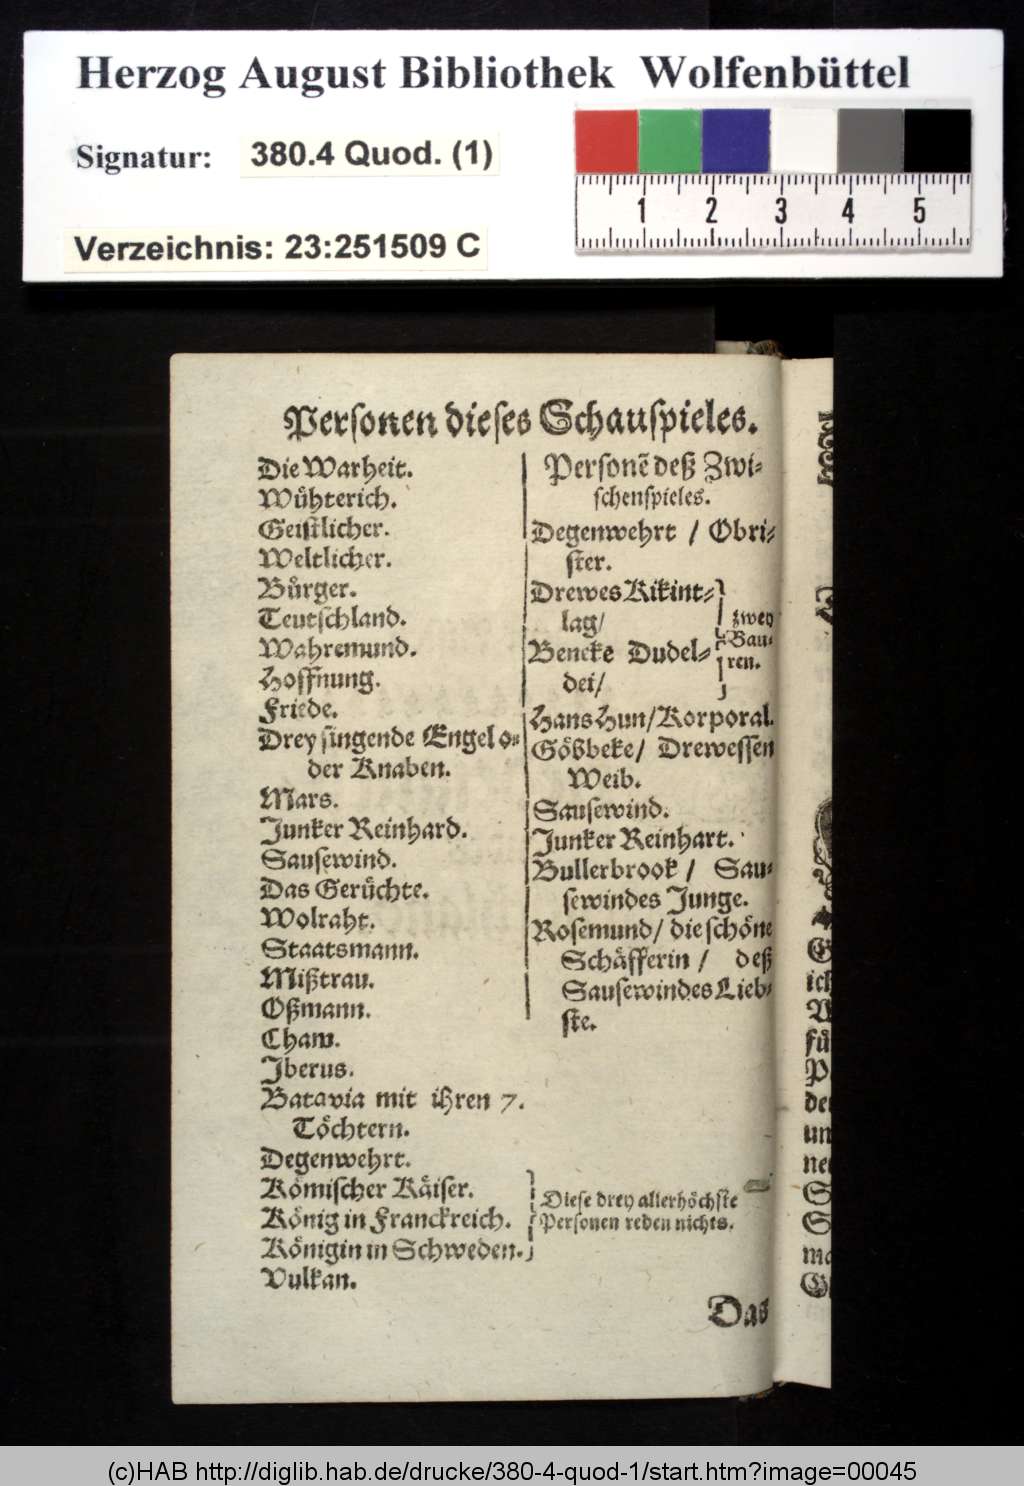 Herzog August Bibliothek Wolfenbüttel
Signatur: 380.4 Quod. (1)
Verzeichnis: 23:251509 C
1 2 3 4 5
Personen dieses Schauspieles.
Die Warheit.
Wuͤhterich.
Geistlicher.
Weltlicher.
Buͤrger.
Teutschland.
Wahremund.
Hoffnung.
Friede.
Drey singende Engel o⸗
der Knaben.
Mars.
Junker Reinhard.
Sausewind.
Das Geruͤchte.
Wolraht.
Staatsmann.
Mißtrau.
Oßmann.
Cham.
Iberus.
Batavia mit ihren 7.
Toͤchtern.
Degenwehrt.
Roͤmischer Kaͤiser.
Koͤnig in Franckreich.
Koͤnigin in Schweden.
Diese drey allerhoͤchste
Personen reden nichts.
Vulkan.
Personē deß Zwi⸗
schenspieles.
Degenwehrt / Obri⸗
ster.
Drewes Kikint⸗
lag/
Bencke Dudel⸗
dei/
zwey
Bau⸗
ren.
Hans Hun/ Korporal.
Goͤßbeke/ Drewessen
Weib.
Sausewind.
Junker Reinhart.
Bullerbrook / Sau⸗
sewindes Junge.
Rosemund/ die schoͤne
Schaͤfferin / deß
Sausewindes Lieb⸗
ste.
Das
(c)HAB http://diglib.hab.de/drucke/380-4-quod-1/start.htm?image=00045